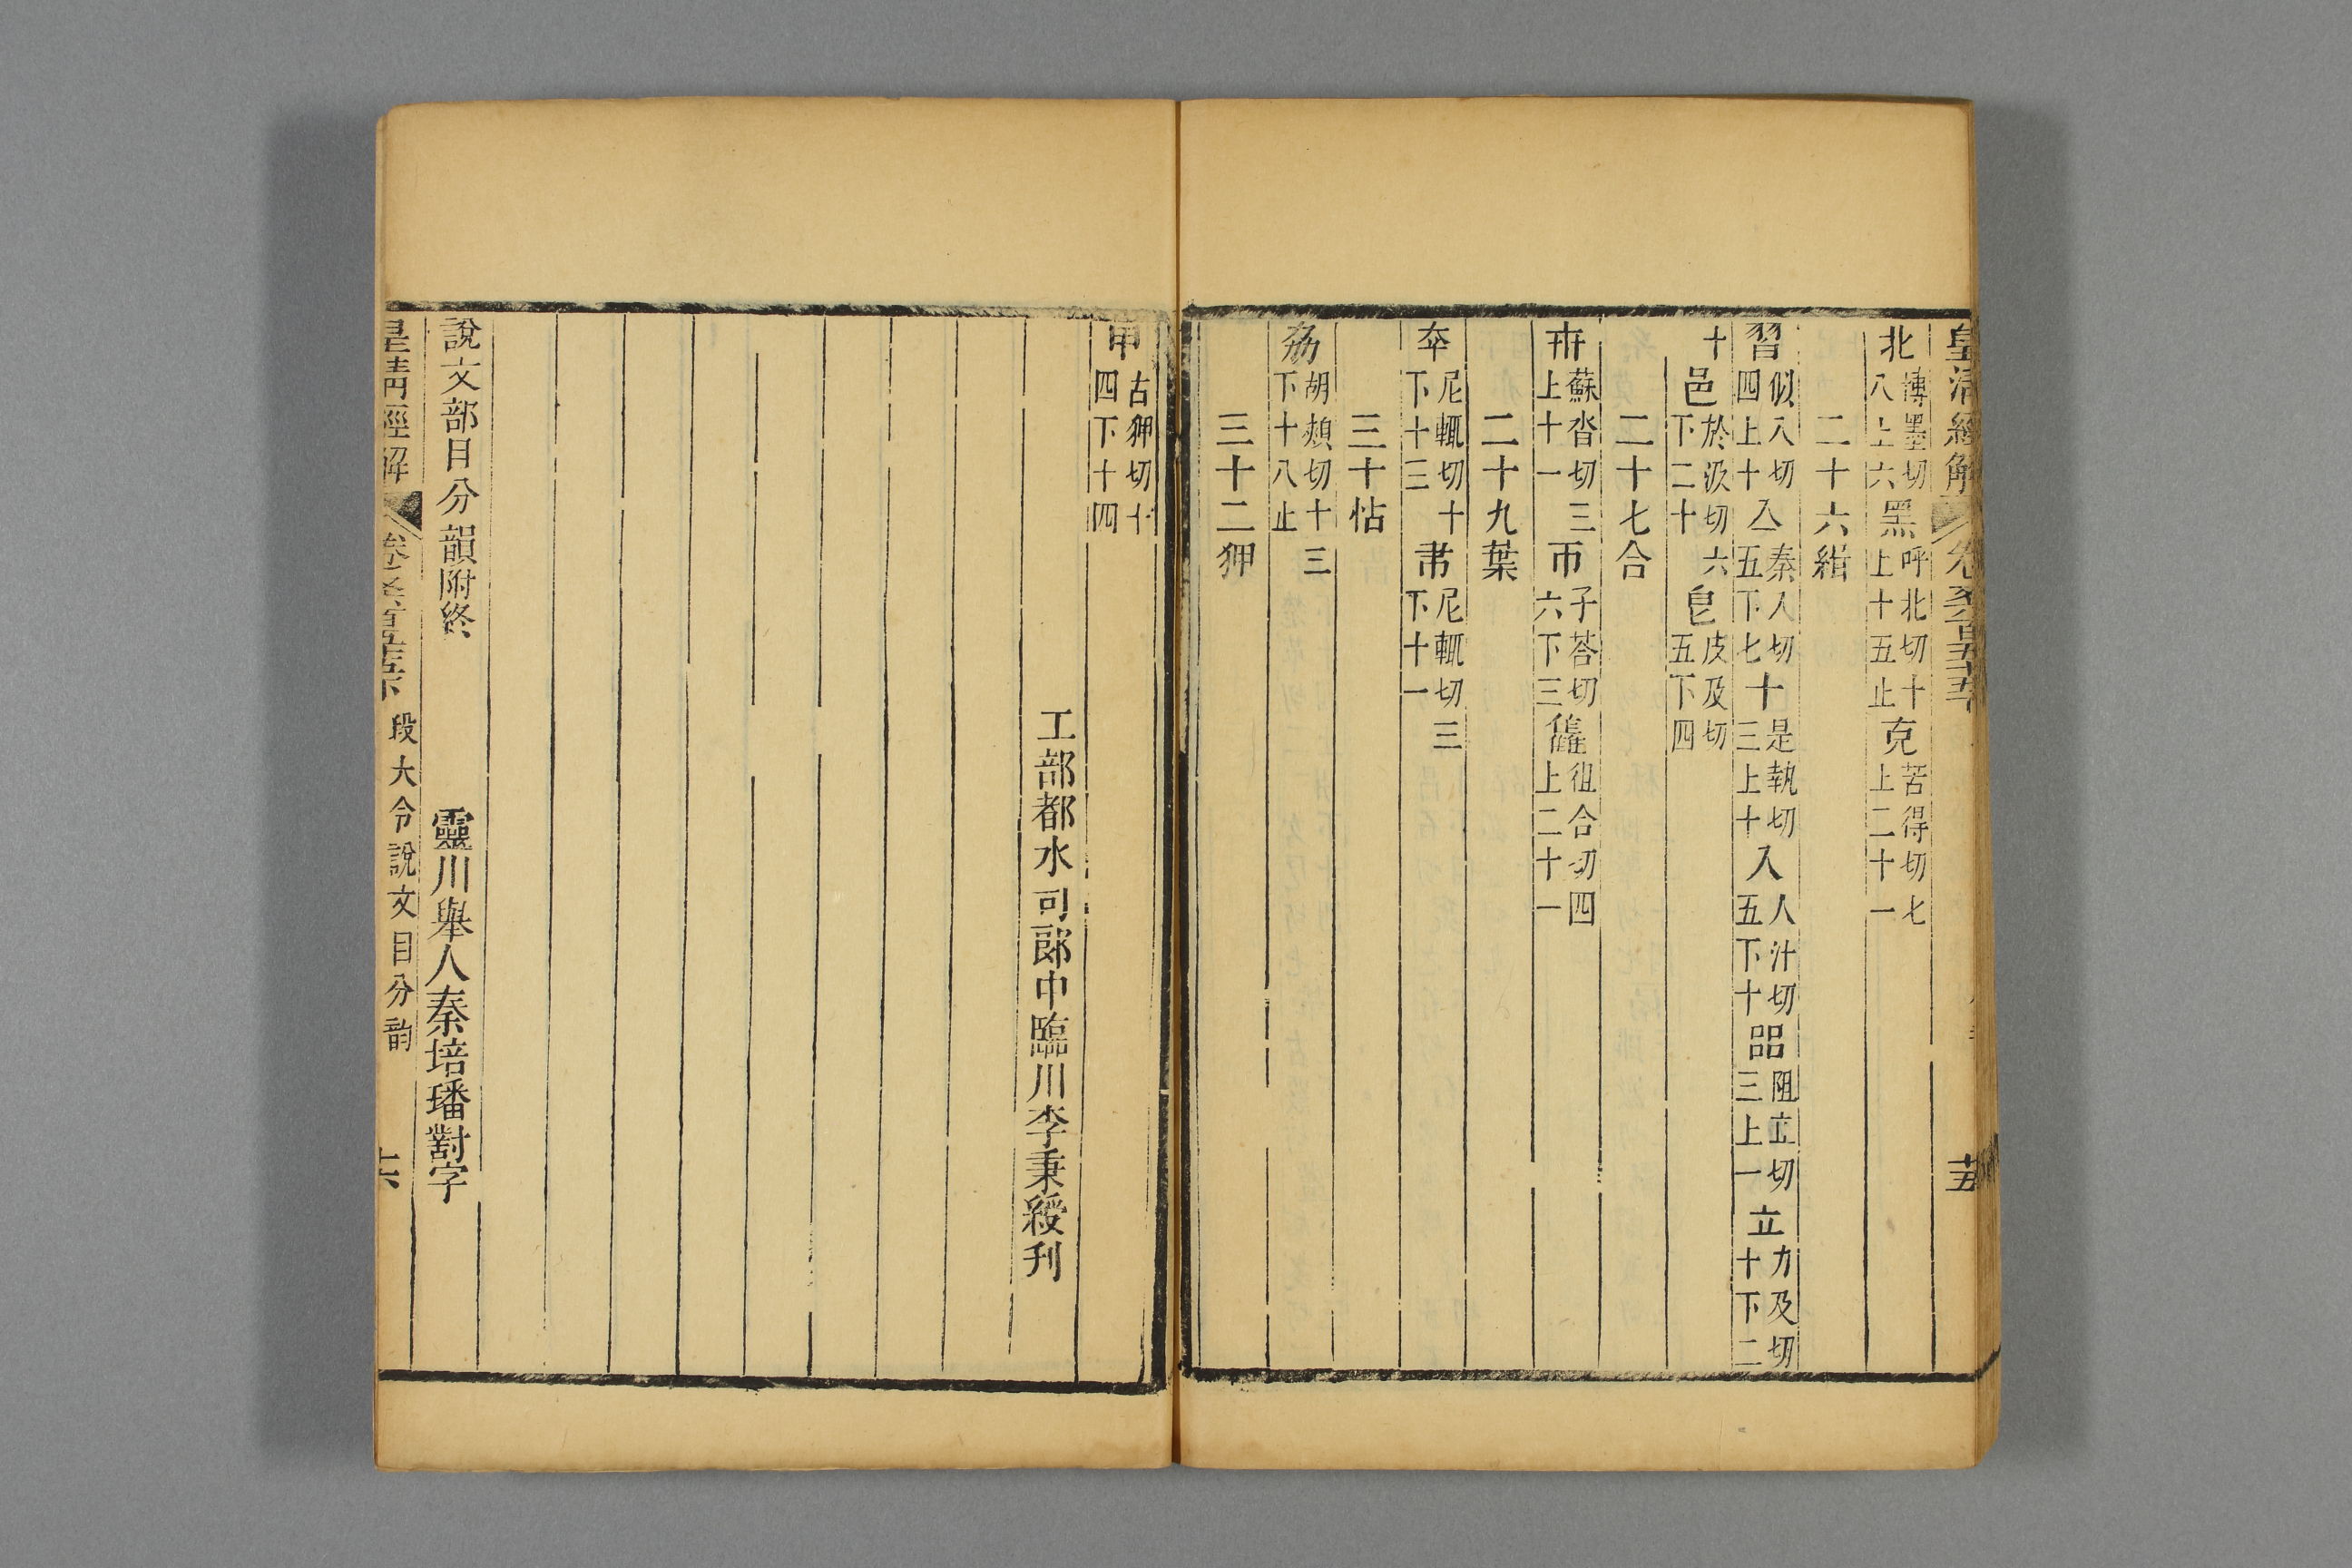 皇清經解
北博墨切八上六黑呼北切十上十五止克苦得切七上二十一
二十六緝
習似入切四上十亼秦入切五下七十是執切三上十入人汁切五下十㗊阻立切三上一立力及切十下二
十邑於汲切六下二十皀皮及切五下四
二十七合
卅蘇沓切三上十一帀子荅切六下三雥徂合切四上二十一
二十九葉
㚔尼輒切十下十三𦘒尼輒切三下十一
三十怗
劦胡頰切十三下十八止
三十二狎
甲古狎切十四下十四
工部都水司郎中臨川李秉綬刊
說文部目分韻附終 靈川舉人秦培璠對字
皇清經解 段大令說文目分韵